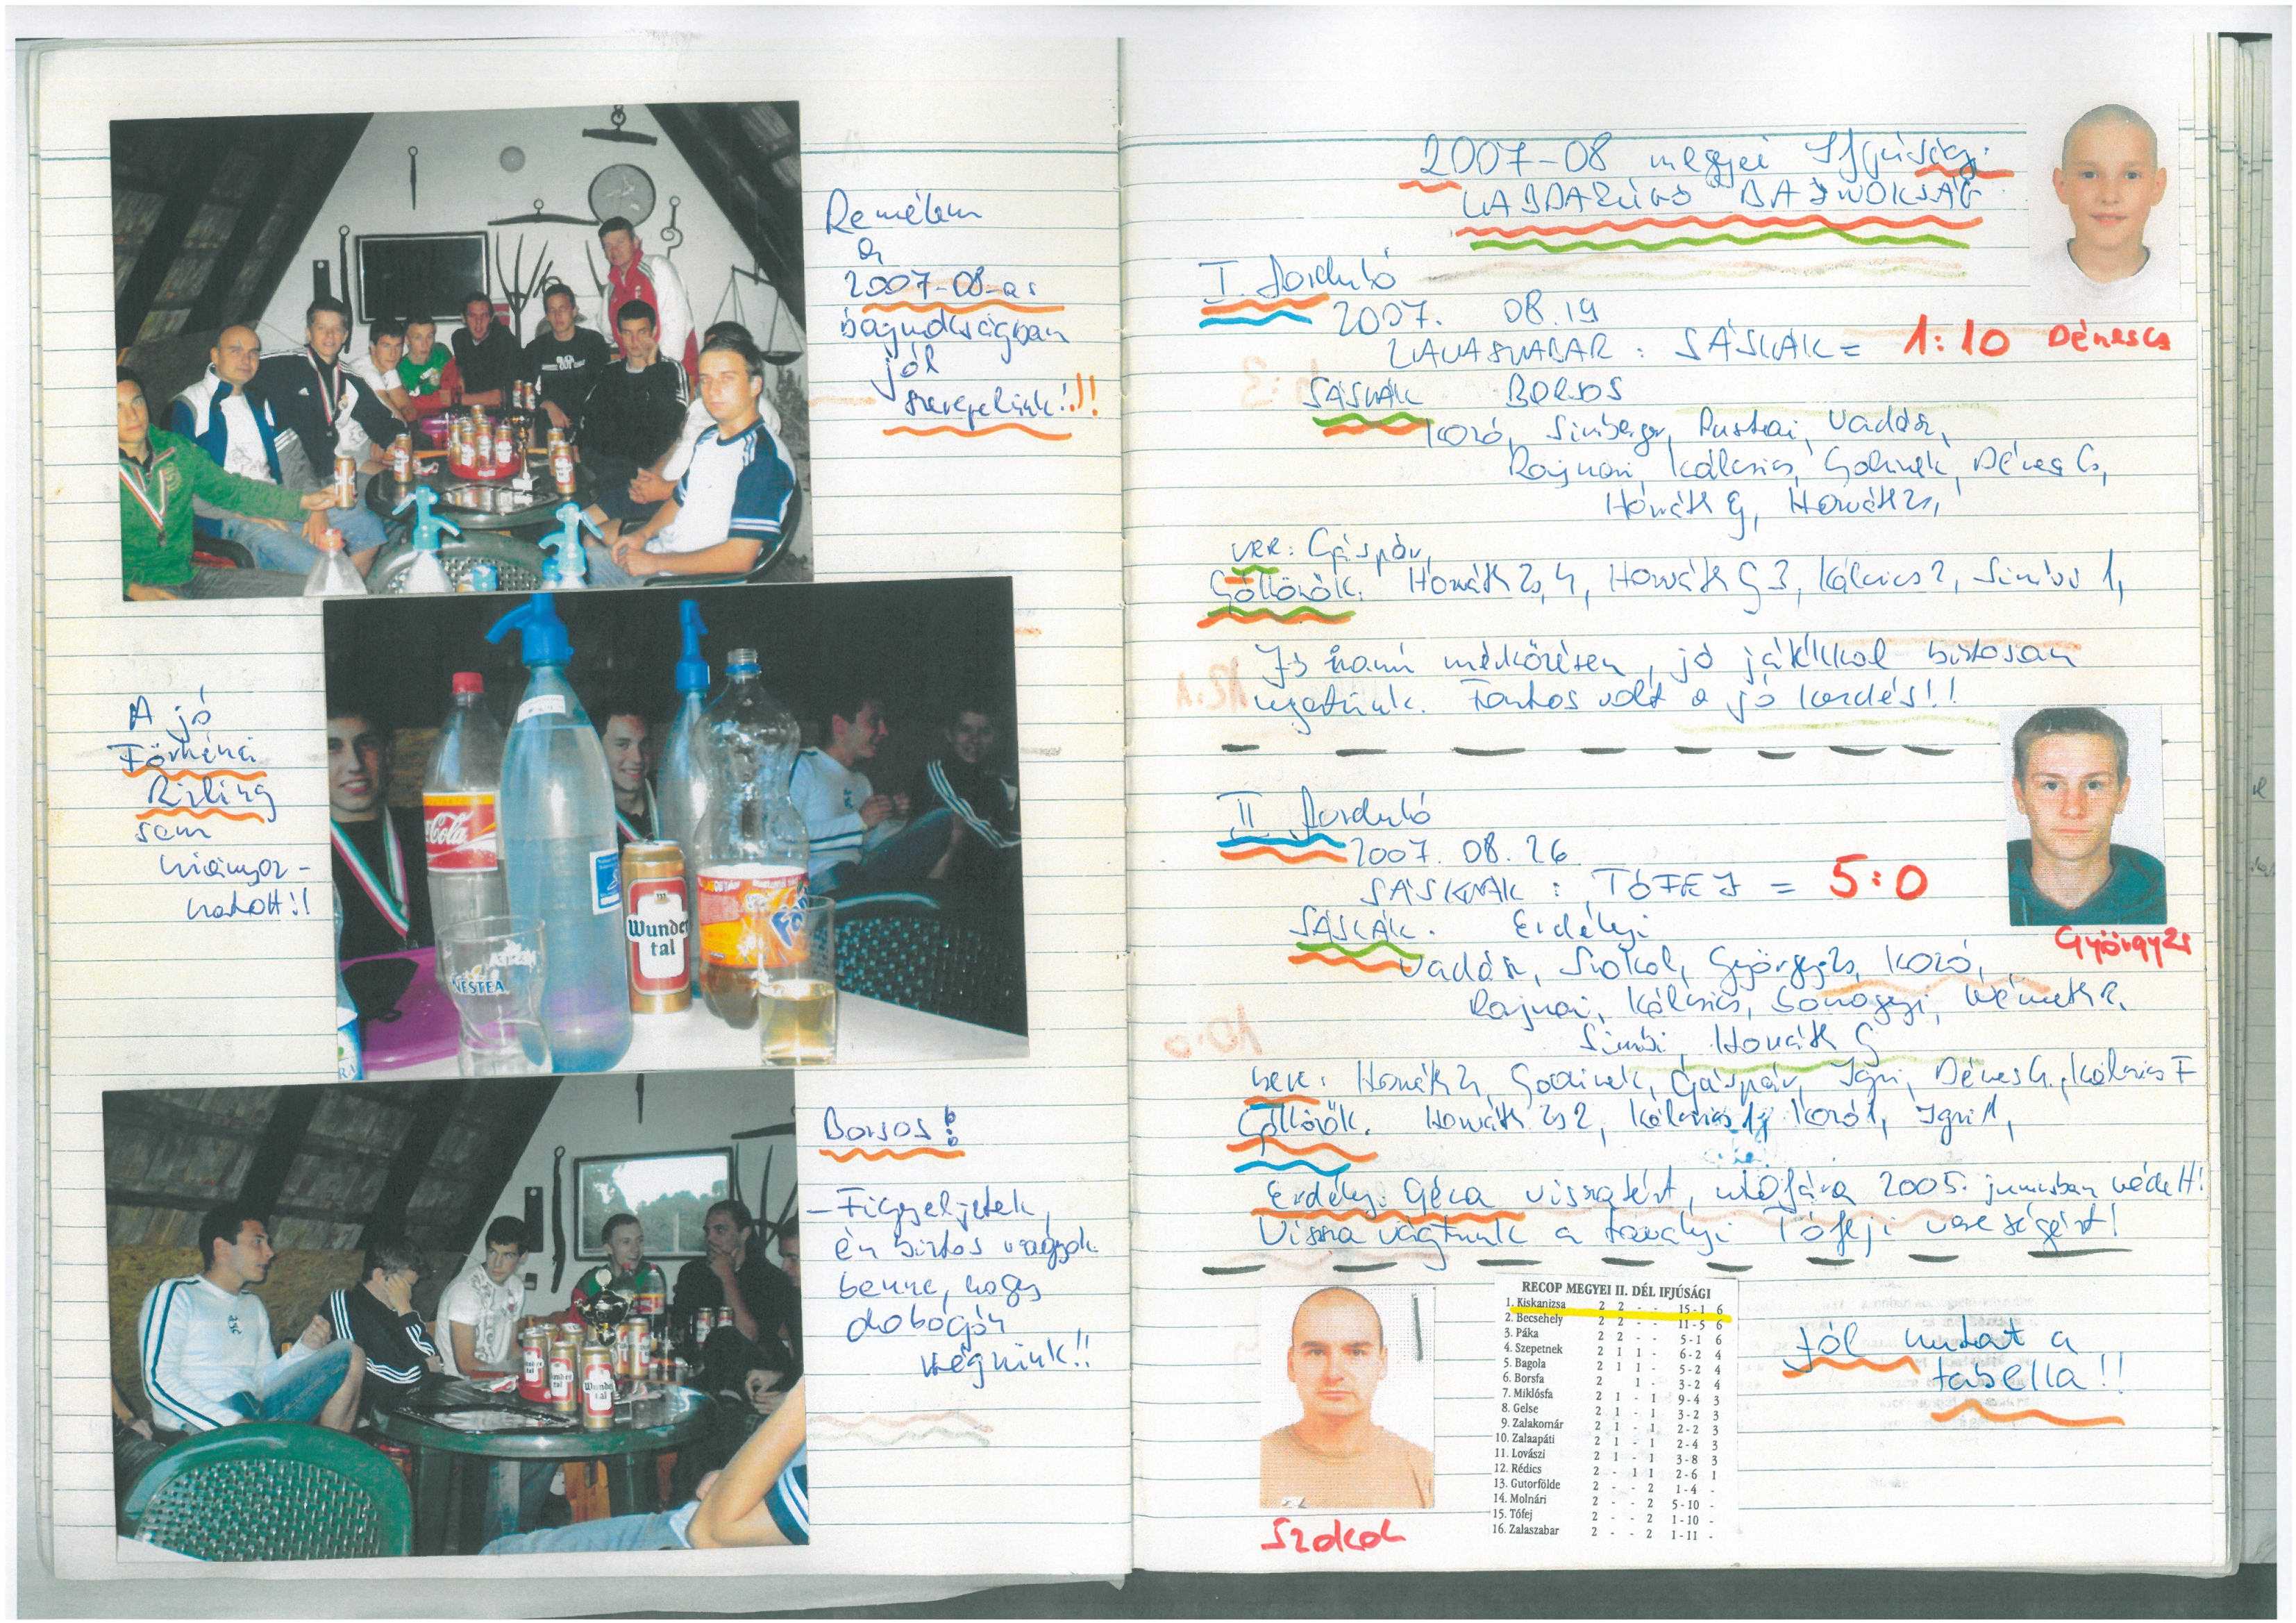 Remélem
a
2007-08-as
bajnokságban
jól
szerepelünk!!!
A jó
Förhénci
Rizling
sem
hiányoz-
hatott!!
Coca-Cola
Wunder
tal
NESTEA
Borsos!
- Figyeljetek,
én biztos vagyok
benne, hogy
dobogón
végzünk!!
2007-08 megyei Ifjúsági
LABDARÚGÓ BAJNOKSÁG
I. forduló
2007. 08.19
ZALASZABAR : SÁSKÁK = 1:10
Dénes Cs
SÁSKÁK BORSOS
Kozó, Simberger, Pusztai, Vadász,
Rajnai, Kálcsics, Godinek, Dénes Cs,
Horváth G, Horváth Zs,
csere: Gáspár,
Góllövők. Horváth Zs 4, Horváth G 3, Kálcsics 2, Simbi 1,
Jó iramú mérkőzésen, jó játékkal biztosan
nyertünk. Fontos volt a jó kezdés!!
II forduló
2007. 08. 26
SÁSKÁK : TÓFEJ = 5:0
György Zs
SÁSKÁK. Erdélyi
Vadász, Szokol, György Zs, Kozó,
Rajnai, Kálcsics, Somogyi, Németh R.
Simbi, Horváth G
csere: Horváth Zs, Godinek, Gáspár, Igri, Dénes Cs, Kálcsics F
Góllövők. Horváth Zs 2, Kálcsics 1, Kozó 1, Igri 1,
Erdélyi Géza visszatért, utoljára 2005. juniusban védett!
Vissza vágtunk a tavalyi Tófeji vereségért!
RECOP MEGYEI II. DÉL IFJÚSÁGI
1. Kiskanizsa 2 2 - - 15-1 6
2. Becsehely 2 2 - - 11-5 6
3. Páka 2 2 - - 5-1 6
4. Szepetnek 2 1 1 - 6-2 4
5. Bagola 2 1 1 - 5-2 4
6. Borsfa 2 1 - 3-2 4
7. Miklósfa 2 1 - 1 9-4 3
8. Gelse 2 1 - 1 3-2 3
9. Zalakomár 2 1 - 1 2-2 3
10. Zalaapáti 2 1 - 1 2-4 3
11. Lovászi 2 1 - 1 3-8 3
12. Rédics 2 - 1 1 2-6 1
13. Gutorfölde 2 - - 2 1-4 -
14. Molnári 2 - - 2 5-10 -
15. Tófej 2 - - 2 1-10 -
16. Zalaszabar 2 - - 2 1-11 -
Jól mutat a
tabella!!
Szokol